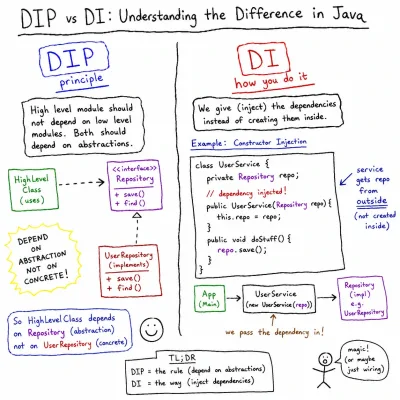 DIP vs DI: Understanding the Difference in Java
DIP
principle
High level module should
not depend on low level
modules. Both should
depend on abstractions.
HighLevel
Class
(uses)
<<interface>>
Repository
+ save()
+ find()
DEPEND
ON
ABSTRACTION
NOT ON
CONCRETE!
UserRepository
(implements)
+ save()
+ find()
So HighLevelClass depends
on Repository (abstraction)
not on UserRepository (concrete)
DI
how you do it
We give (inject) the dependencies
instead of creating them inside.
Example: Constructor Injection
class UserService {
private Repository repo;
// dependency injected!
public UserService(Repository repo){
this.repo = repo;
}
public void doStuff() {
repo.save();
}
}
service
gets repo
from
outside
(not created
inside)
App
(Main)
UserService
(new UserService(repo))
Repository
(impl)
e.g.
UserRepository
we pass the dependency in!
TL;DR
DIP = the rule (depend on abstractions)
DI = the way (inject dependencies)
magic!
(or maybe
just wiring)